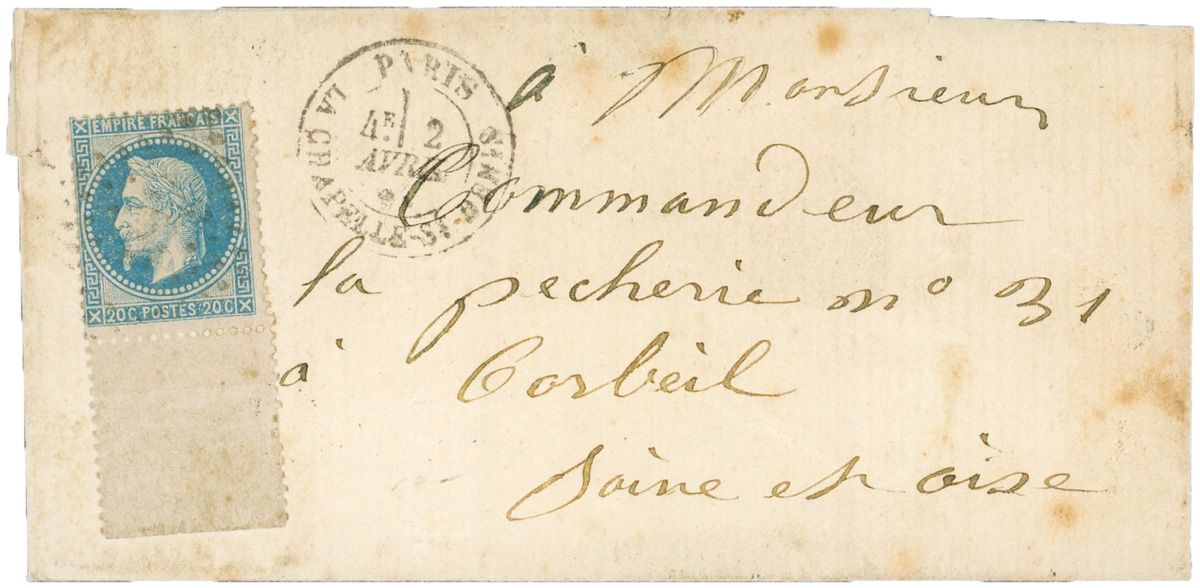 EMPIRE FRANÇAIS
20 C · POSTES · 20 C
PARIS
LA CHAPELLE-ST-DENIS
4E 2
AVRIL
à Monsieur
Commandeur
la pecherie no 31
à Corbeil
Seine et oise